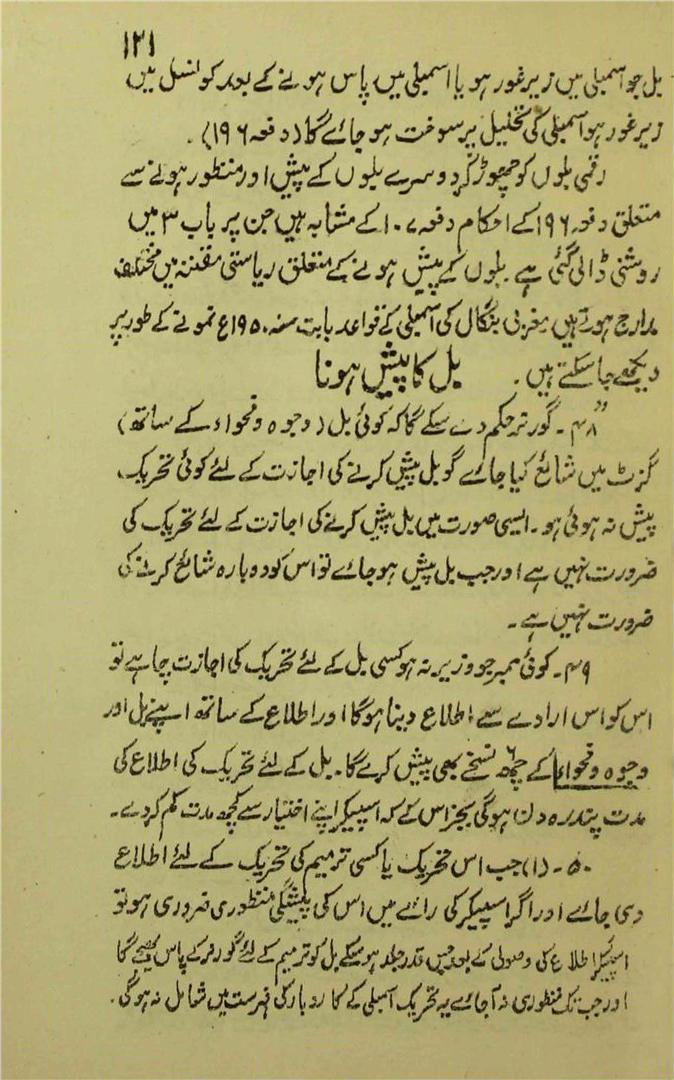 ۱۲۱
بل جو اسمبلی میں زیر غور ہو یا اسمبلی میں پاس ہونے کے بعد کونسل میں
زیر غور ہو اسمبلی کی تحلیل پر سوخت ہو جائے گا (دفعہ ۱۹۶)۔
رقمی بلوں کو چھوڑ کر دوسرے بلوں کے پیش اور منظور ہونے سے
متعلق دفعہ ۱۹۶ کے احکام دفعہ ۱۰۷ کے مشابہ ہیں جن پر باب ۳ میں
روشنی ڈالی گئی ہے۔ بلوں کے پیش ہونے کے متعلق ریاستی مقننہ میں مختلف
مدارج ہوتے ہیں مغربی بنگال کی اسمبلی کے قواعد بابت سنہ ۱۹۵۰ع نمونے کے طور پر
دیکھے جا سکتے ہیں۔ بل کا پیش ہونا
”۴۸۔ گورنر حکم دے سکے گا کہ کوئی بل (وجوہ و فحواء کے ساتھ)
گزٹ میں شائع کیا جائے گو بل پیش کرنے کی اجازت کے لئے کوئی تحریک
پیش نہ ہوئی ہو۔ ایسی صورت میں بل پیش کرنے کی اجازت کے لئے تحریک کی
ضرورت نہیں ہے اور جب بل پیش ہو جائے تو اس کو دوبارہ شائع کرنے کی
ضرورت نہیں ہے۔
۴۹۔ کوئی ممبر جو وزیر نہ ہو کسی بل کے لئے تحریک کی اجازت چاہے تو
اس کو اس ارادے سے اطلاع دینا ہوگا اور اطلاع کے ساتھ اپنے بل اور
وجوہ و فحواء کے چھ ۶ نسخے بھی پیش کرے گا۔ بل کے لئے تحریک کی اطلاع کی
مدت پندرہ دن ہوگی بجز اس کے کہ اسپیکر اپنے اختیار سے کچھ مدت کم کر دے۔
۵۰۔ (۱) جب اس تحریک یا کسی ترمیم کی تحریک کے لئے اطلاع
دی جائے اور اگر اسپیکر کی رائے میں اس کی پیشگی منظوری ضروری ہو تو
اسپیکر اطلاع کی وصولی کے بعد جس قدر جلد ہو سکے بل کو ترمیم کے لئے گورنر کے پاس بھیجے گا
اور جب تک منظوری نہ آجائے یہ تحریک اسمبلی کے کاروبار کی فہرست میں شامل نہ ہوگی۔